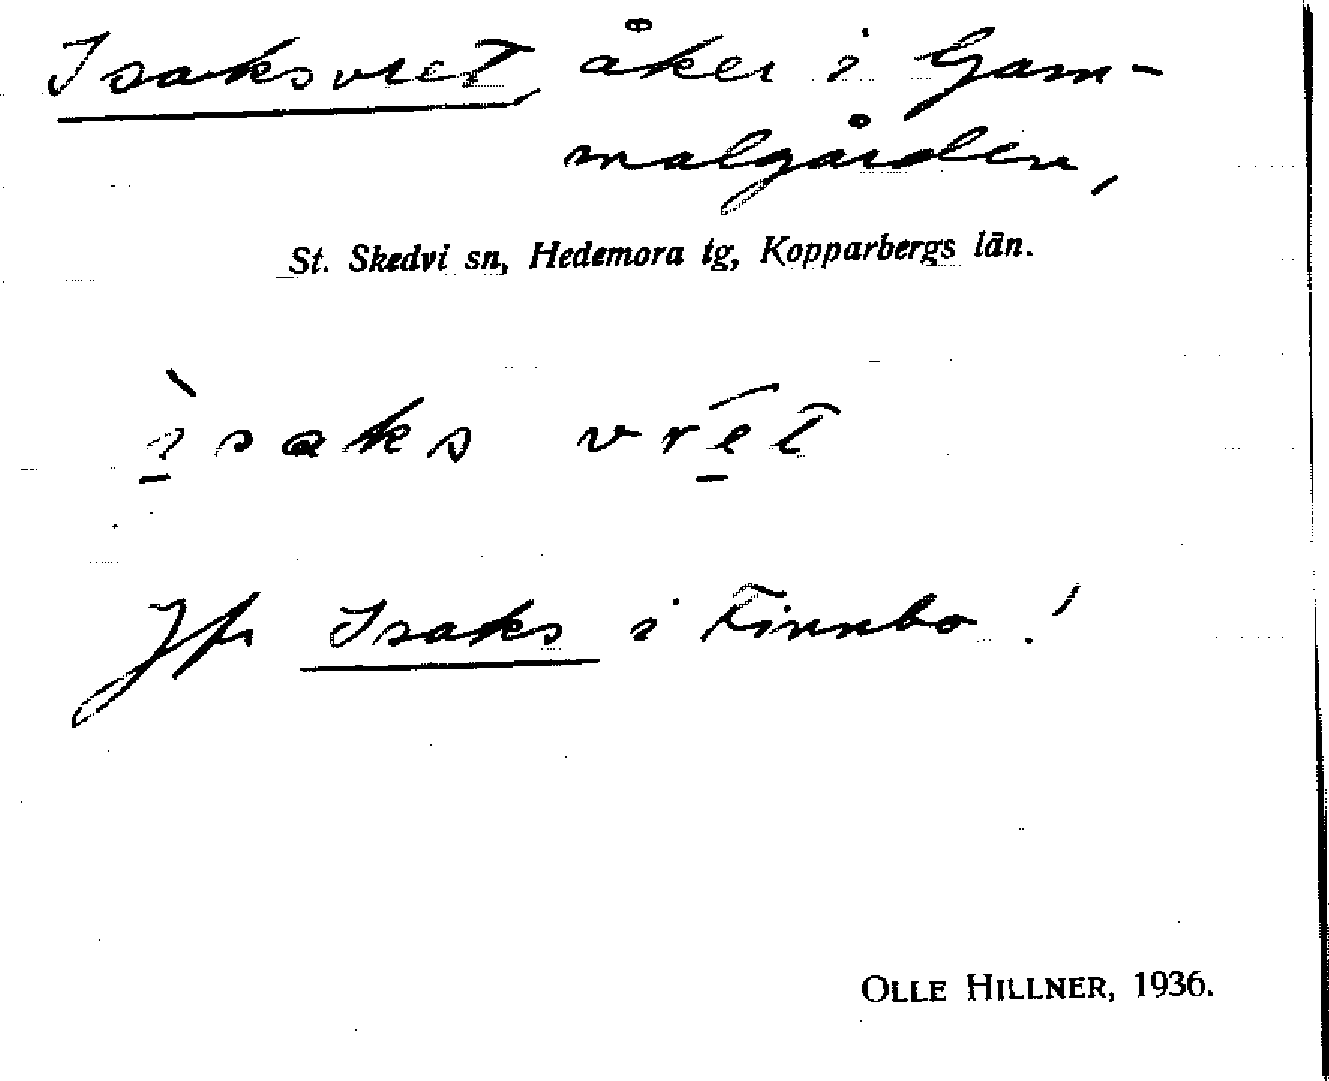 Isaksvret, åker i Gam-
malgården,
St. Skedvi sn, Hedemora tg, Kopparbergs län.
ìsaks vrét
Jfr Isaks i Finnbo!
OLLE HILLNER, 1936.